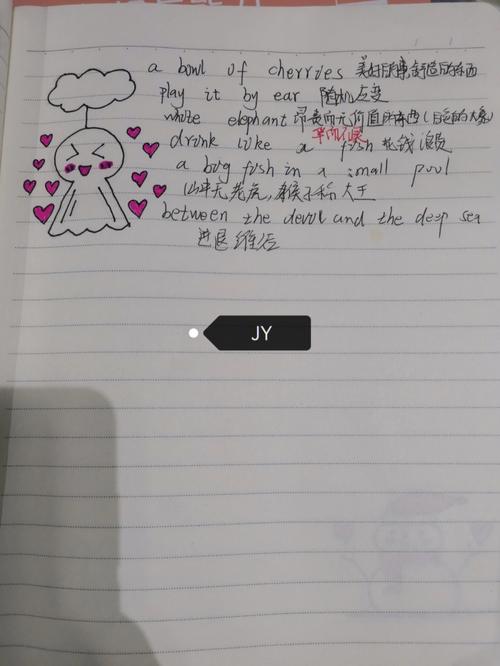 a bowl of cherries 美好的事
play it by ear 随机应变
white elephant 昂贵而无价值的东西(白色的大象)
drink like a fish 花钱浪费
a big fish in a small pool
山中无老虎,猴子称大王
between the devil and the deep sea
进退维谷
JY